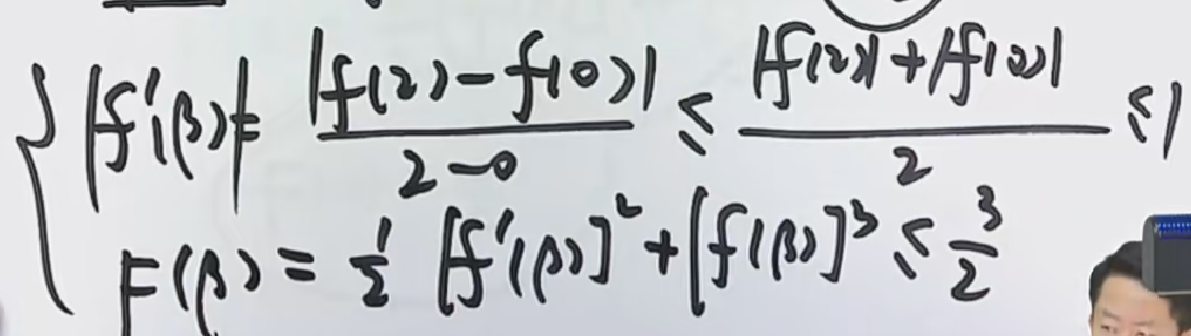 |f'(β)| = |f(2) - f(0)| / (2-0) ≤ (|f(2)| + |f(0)|) / 2 ≤ 1
F(β) = 1/2 [f'(β)]² + [f(β)]³ ≤ 3/2